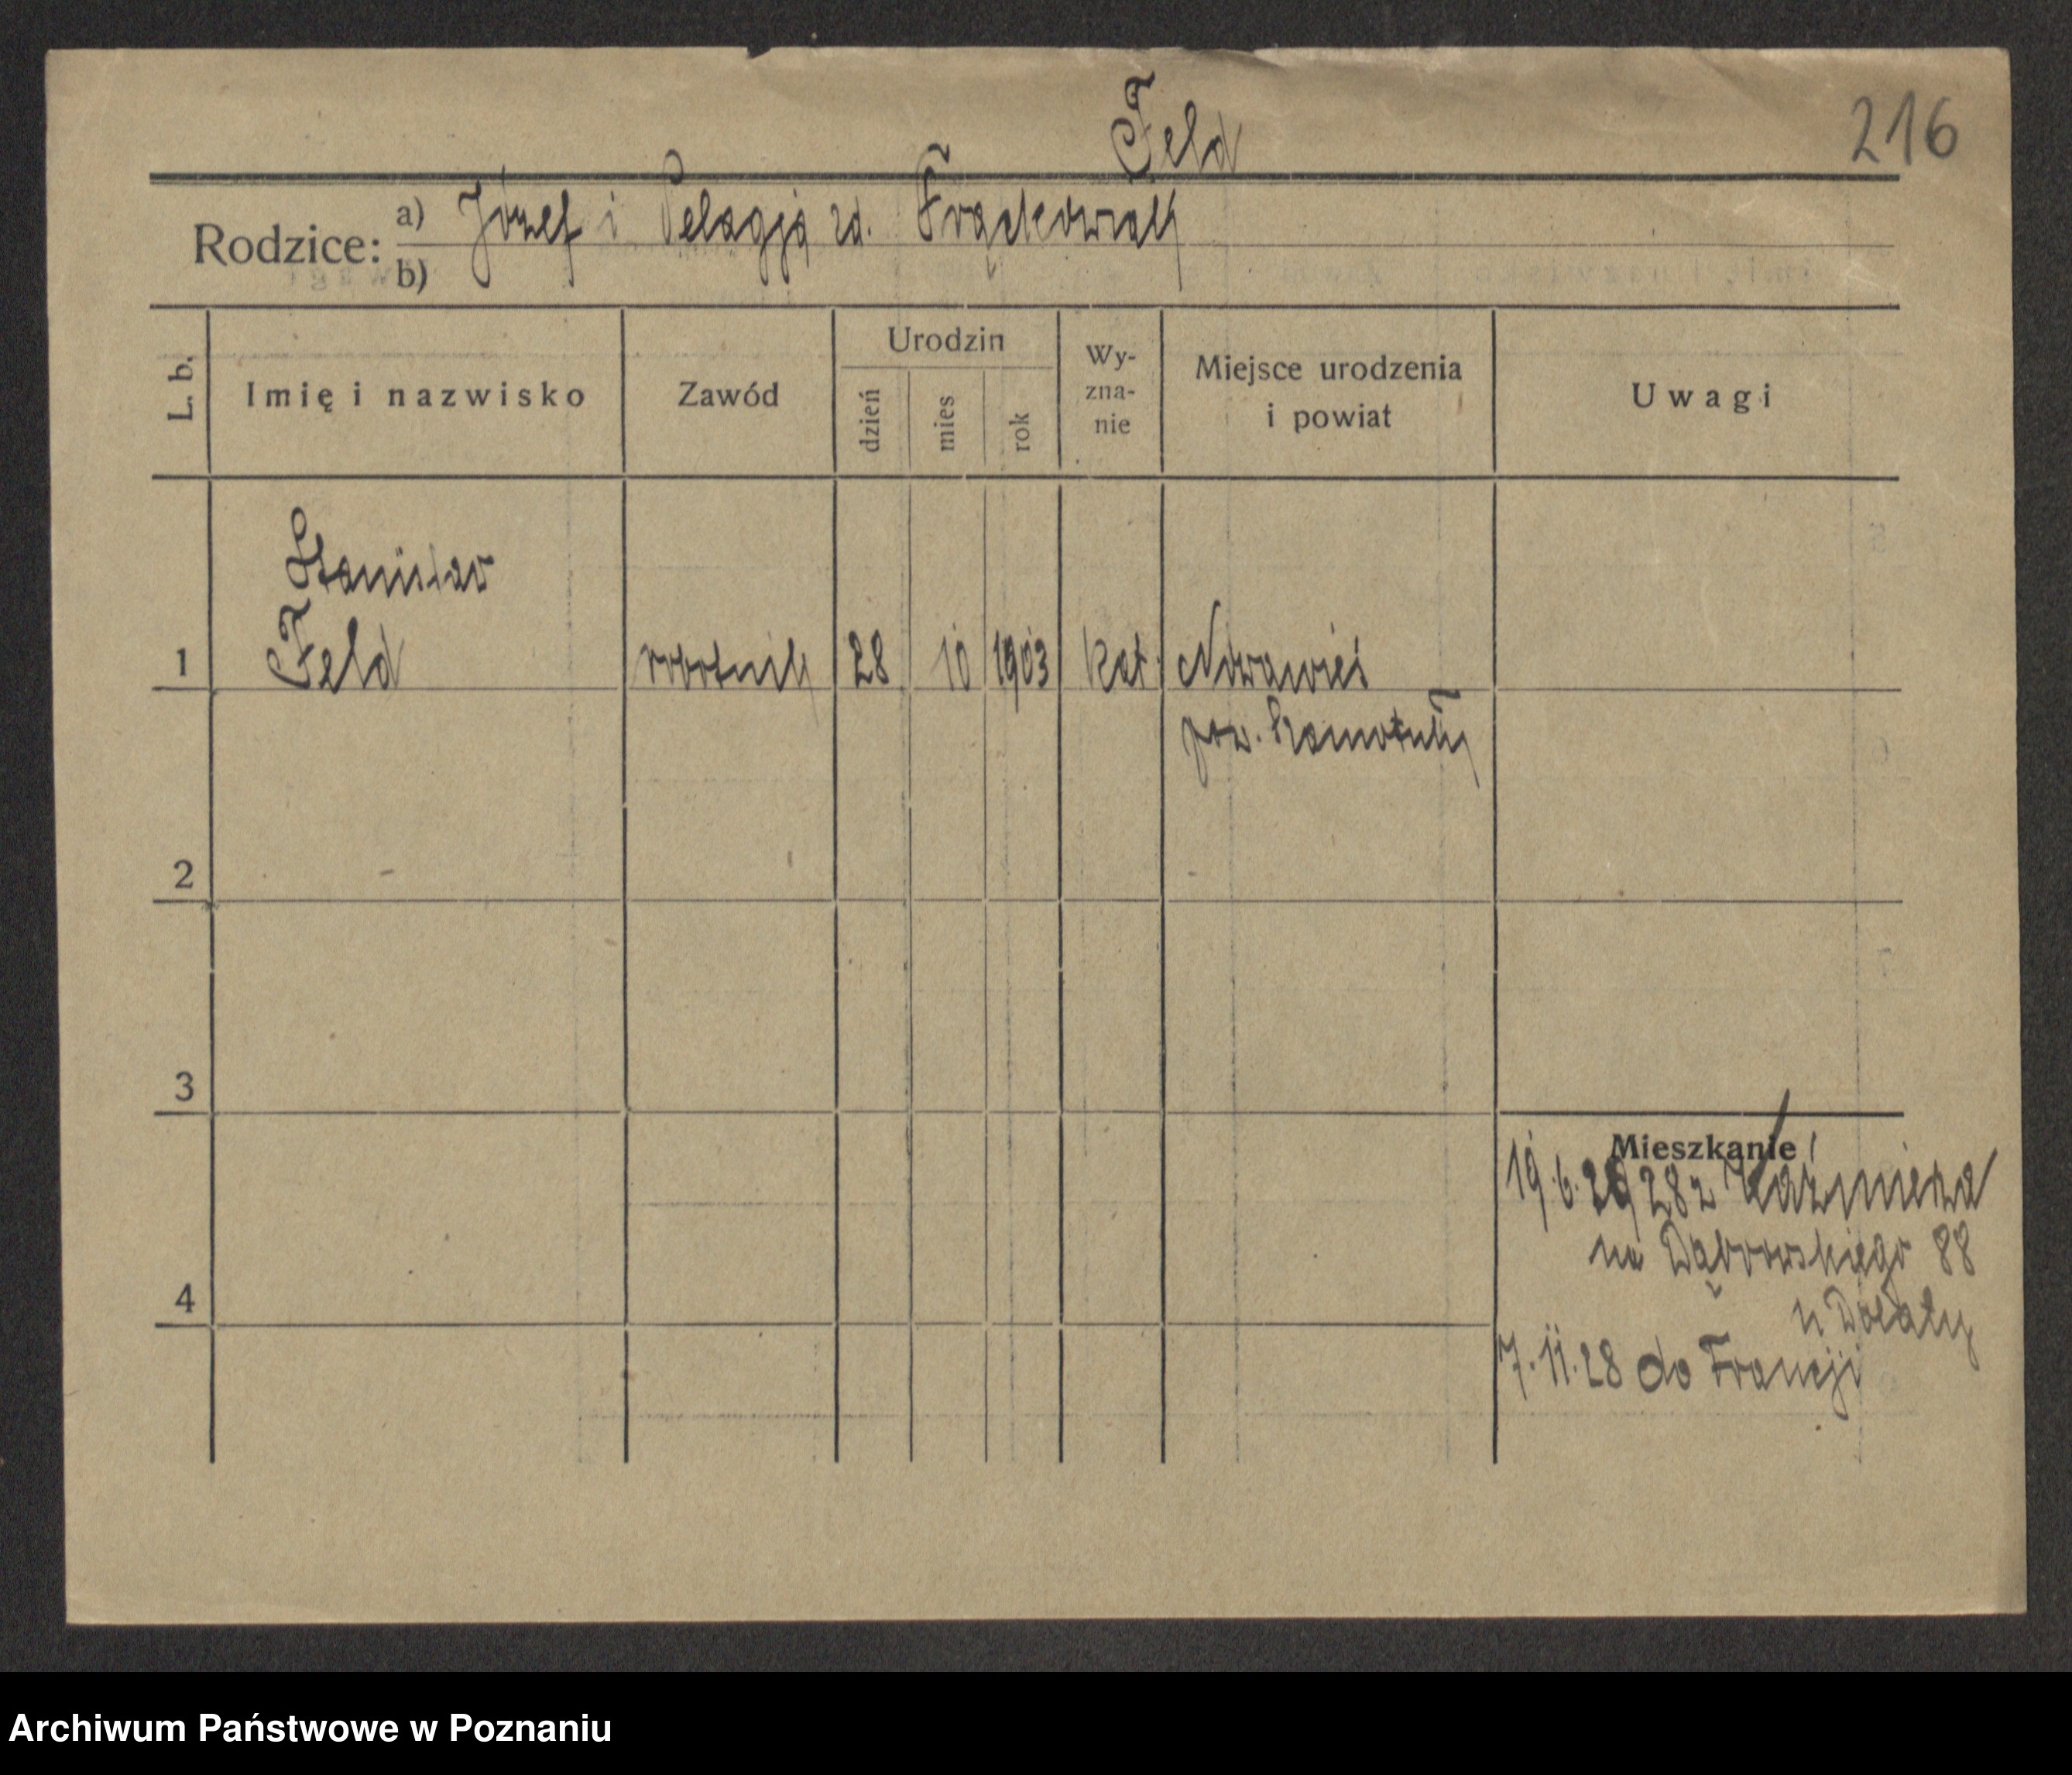 216
Feld
Rodzice: a) Józef i Pelagja zd. Frąckowiak
b)
L. b.
Imię i nazwisko
Zawód
Urodzin
dzień
mies
rok
Wy-
zna-
nie
Miejsce urodzenia
i powiat
Uwagi
Stanisław
1 Feld robotnik 28 10 1903 kat. Nowawieś
pow. Szamotuły
2
3
Mieszkanie
19.6. 28 z Kaźmierza
na Dąbrowskiego 88
4
7.11.28 do Francji
Archiwum Państwowe w Poznaniu